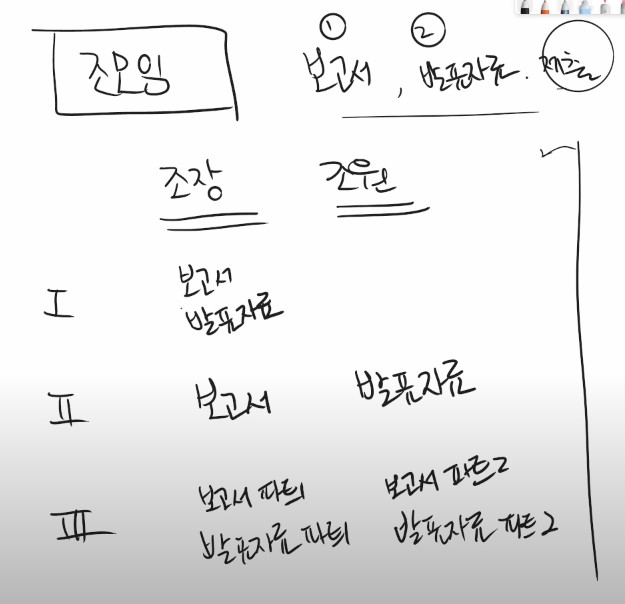 조모임
① ②
보고서, 발표자료. 제출
조장 조원
I 보고서
발표자료
II 보고서 발표자료
III 보고서 파트1 보고서 파트2
발표자료 파트1 발표자료 파트2